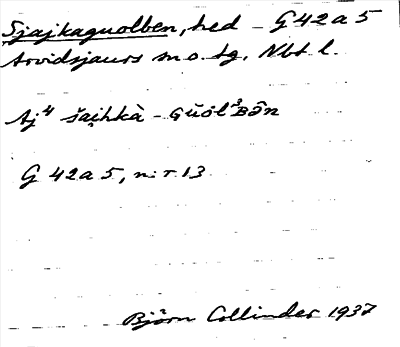 Sjajkaguolben, hed - G 42 a 5
Arvidsjaurs sn o. tg, Nbt l.
Aj⁴ šai̭hkà - GŭòlᵌBə̂n
G 42 a 5, n:r 13
Björn Collinder 1937